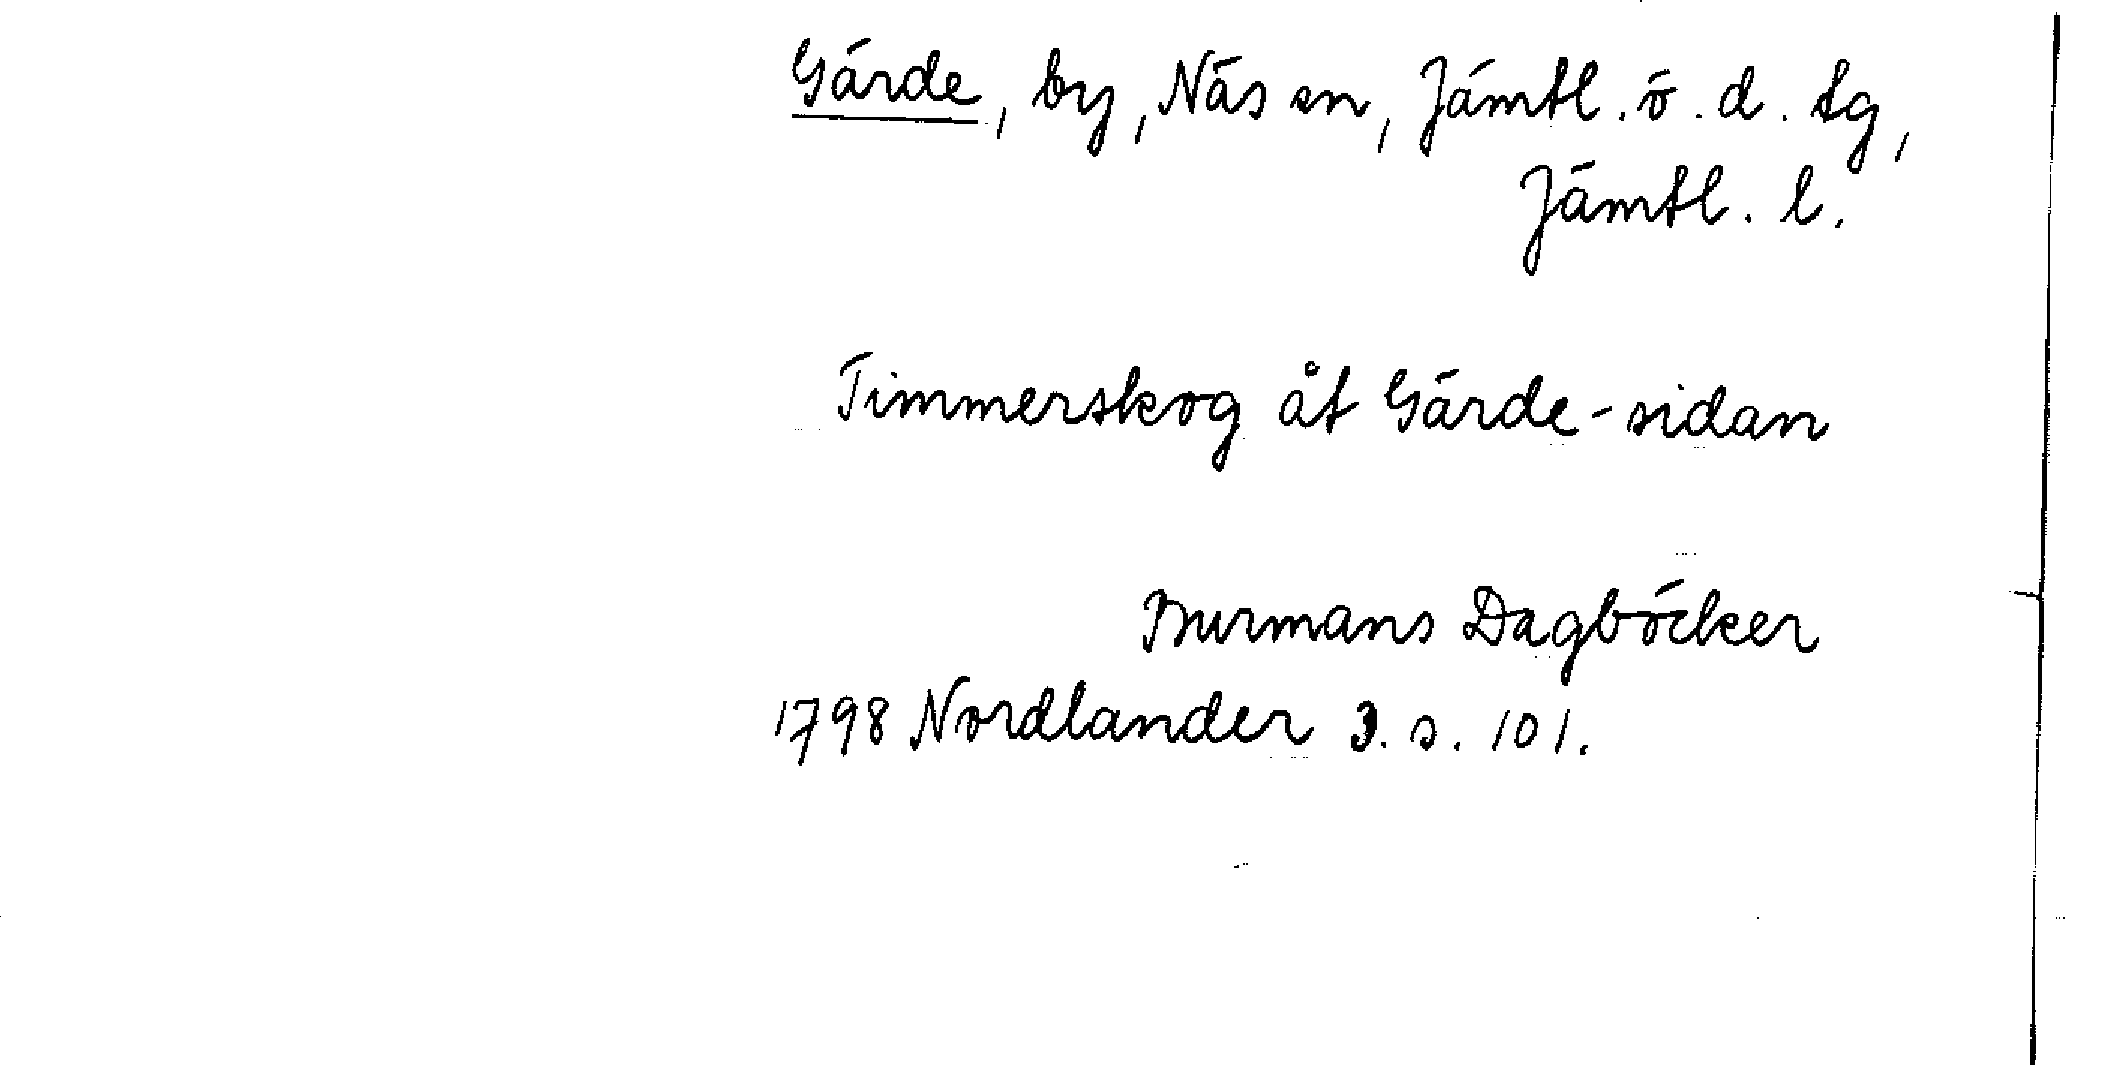 Gärde, by, Näs sn, Jämtl. ö. d. tg,
Jämtl. l.
Timmerskog åt Gärde-sidan
Burmans Dagböcker
1798 Nordlander 3. s. 101.